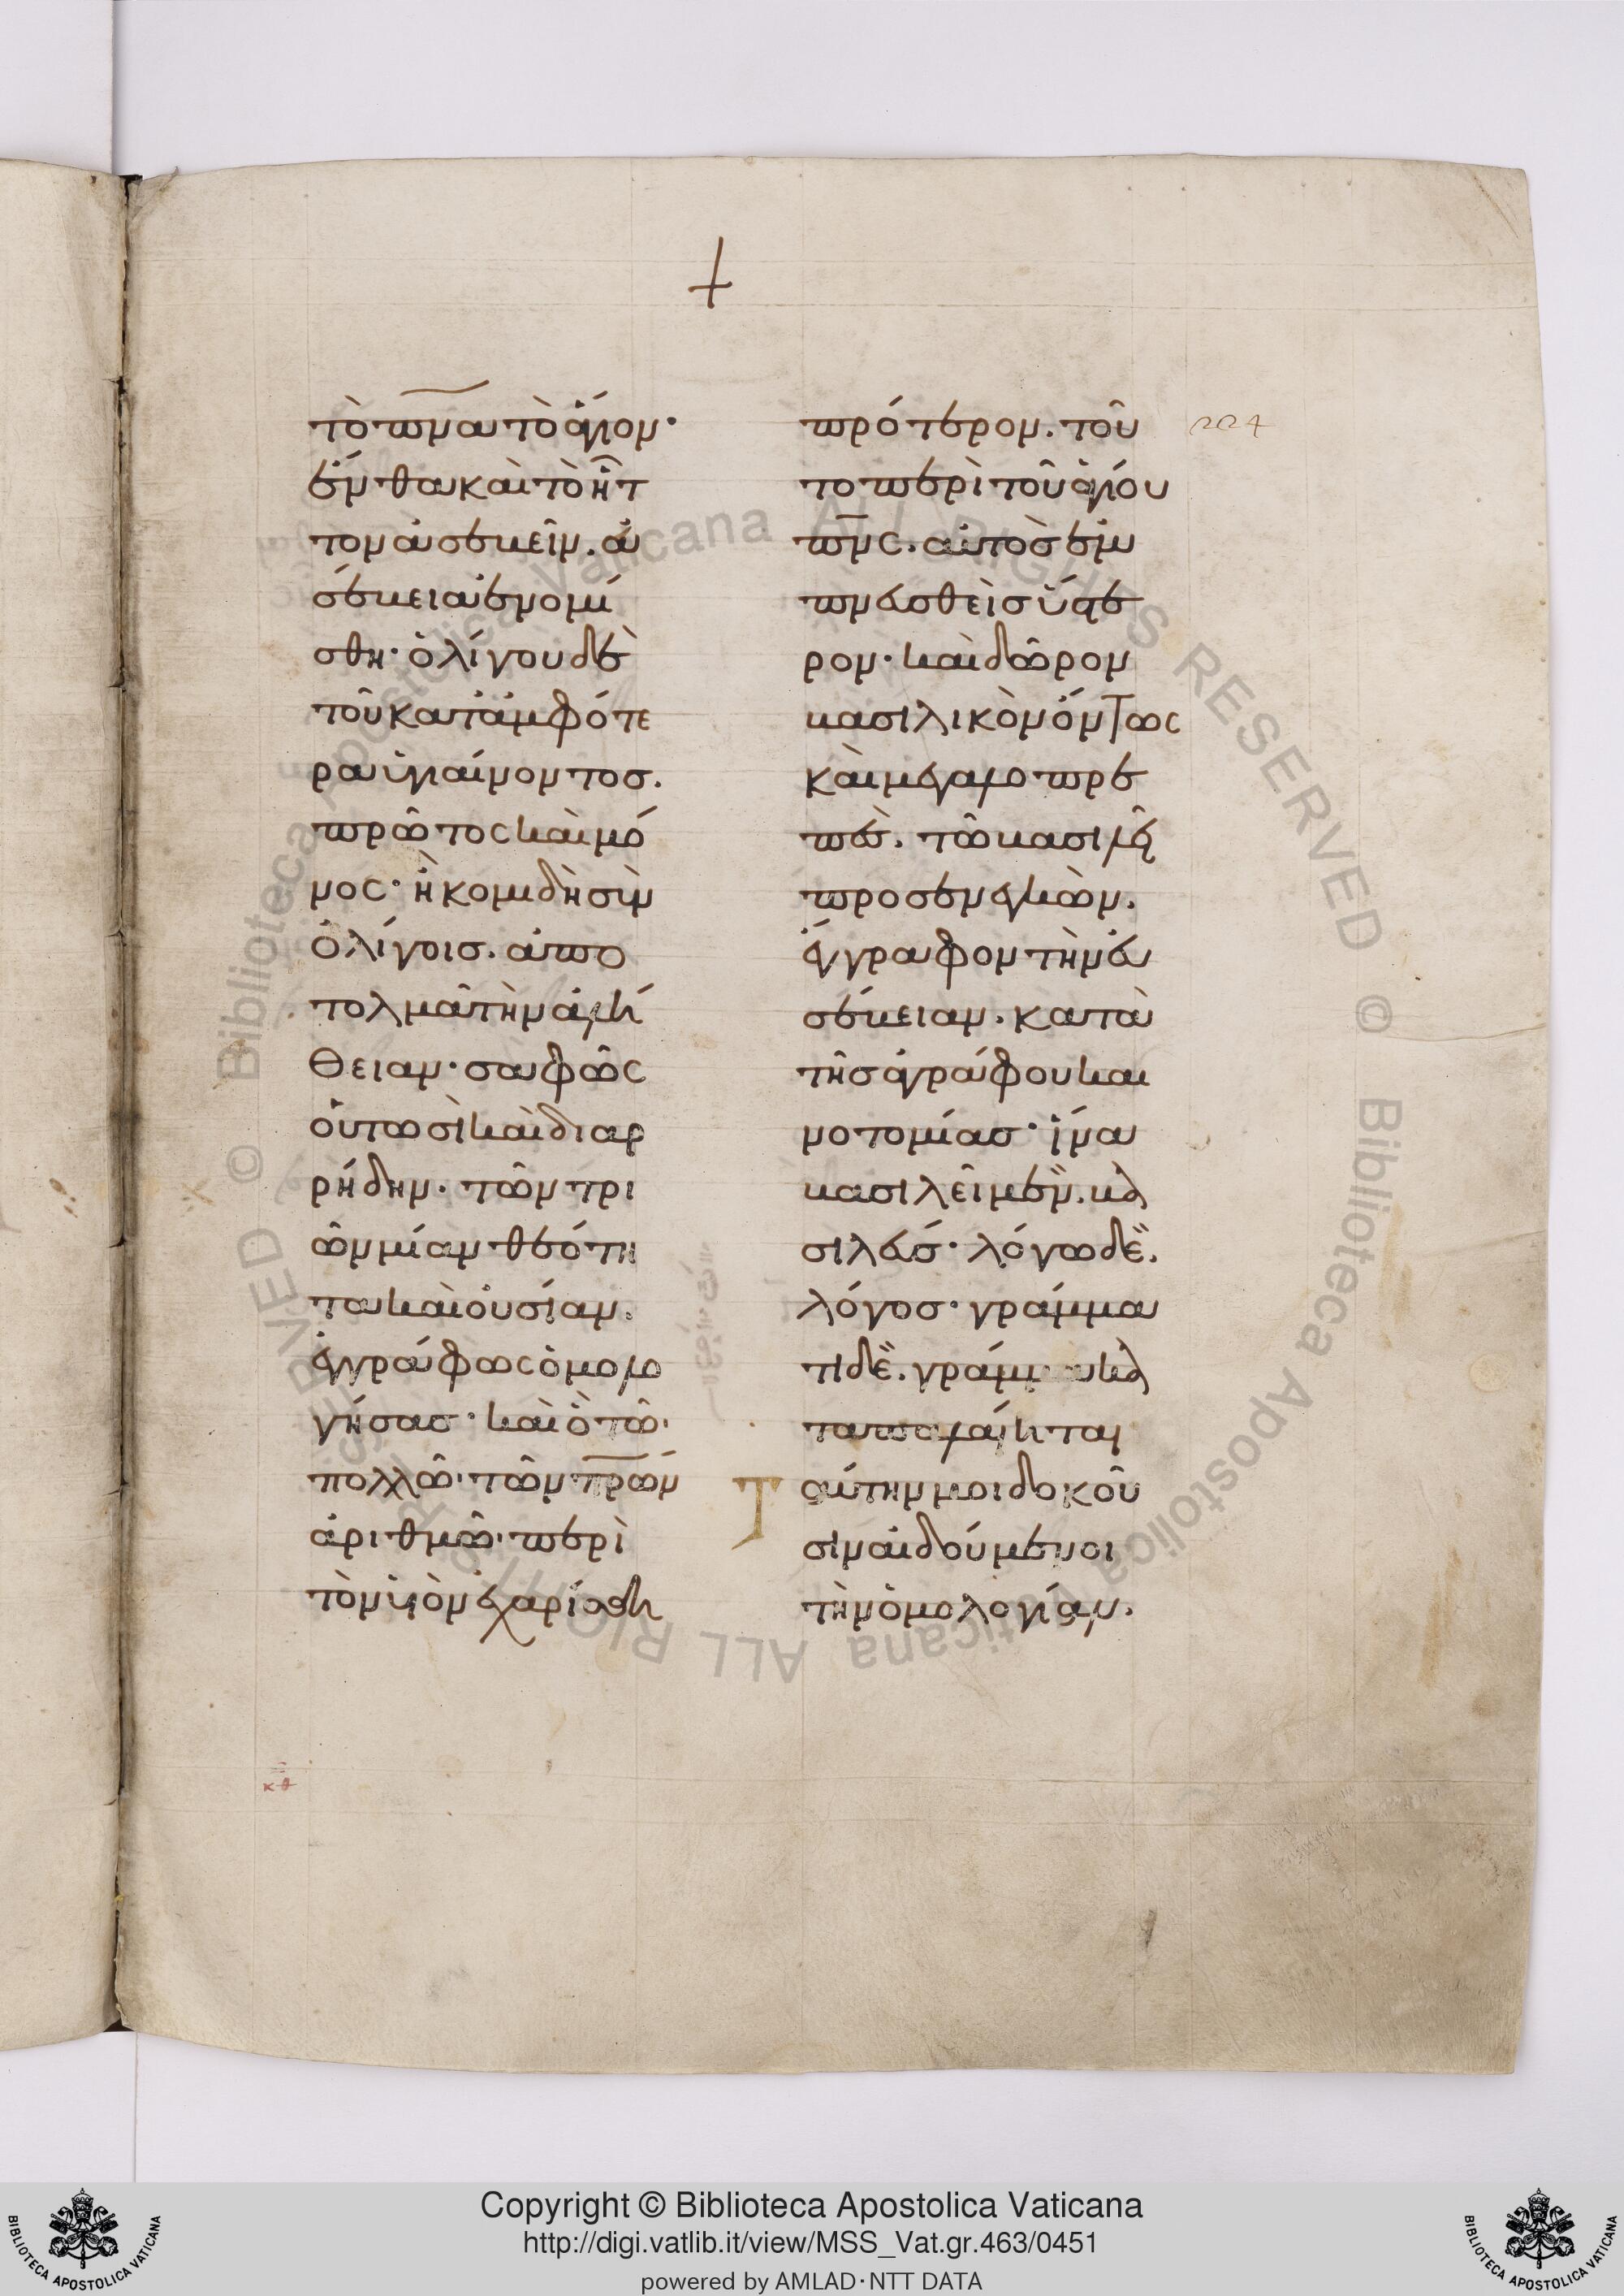 τὸ πνα τὸ ἅγιον·
ἔνθα καὶ τὸ ἧτ
τον ἀσεβεῖν. ἀ
σέβεια ἐνομί
σθη· ὀλίγου δὲ
τοῦ κατ' ἀμφότε
ρα ὑγιαίνοντος.
πρῶτος καὶ μό
νος· ἢ κομιδῆ σὺν
ὀλίγοις. ἀπο
τολμᾶ τὴν ἀλή
θειαν· σαφῶς
οὑτωσὶ καὶ διαρ
ρήδην· τῶν τρι
ῶν μίαν θεότη
τα καὶ οὐσίαν.
ἐγγράφως ὁμολο
γήσας· καὶ ὃ τῶ
πολλῶ τῶν πρων
ἀριθμῶ περὶ
τὸν υἱὸν ἐχαρίσθη
πρότερον. τοῦ
το περὶ τοῦ ἁγίου
πνς. αὐτὸς ἐμ
πνευσθεὶς ὕστε
ρον· καὶ δῶρον
βασιλικὸν ὄντως
καὶ μεγαλοπρε
πὲς. τῶ βασιλεῖ
προσενεγκών.
ἔγγραφον τὴν εὐ
σέβειαν. κατὰ
τῆς ἀγράφου και
νοτομίας· ἵνα
βασιλεῖ μὲν. βα
σιλεύς· λόγω δὲ.
λόγος· γράμμα
τι δὲ. γράμμα κα
ταπαλαίηται
Ταύτην μοι δοκοῦ
σιν αἰδούμενοι
τὴν ὁμολογίαν.
κθ
224
Copyright © Biblioteca Apostolica Vaticana
http://digi.vatlib.it/view/MSS_Vat.gr.463/0451
powered by AMLAD·NTT DATA
BIBLIOTECA APOSTOLICA VATICANA
BIBLIOTECA APOSTOLICA VATICANA
© Biblioteca Apostolica Vaticana ALL RIGHTS RESERVED © Biblioteca Apostolica Vaticana ALL RIGHTS RESERVED